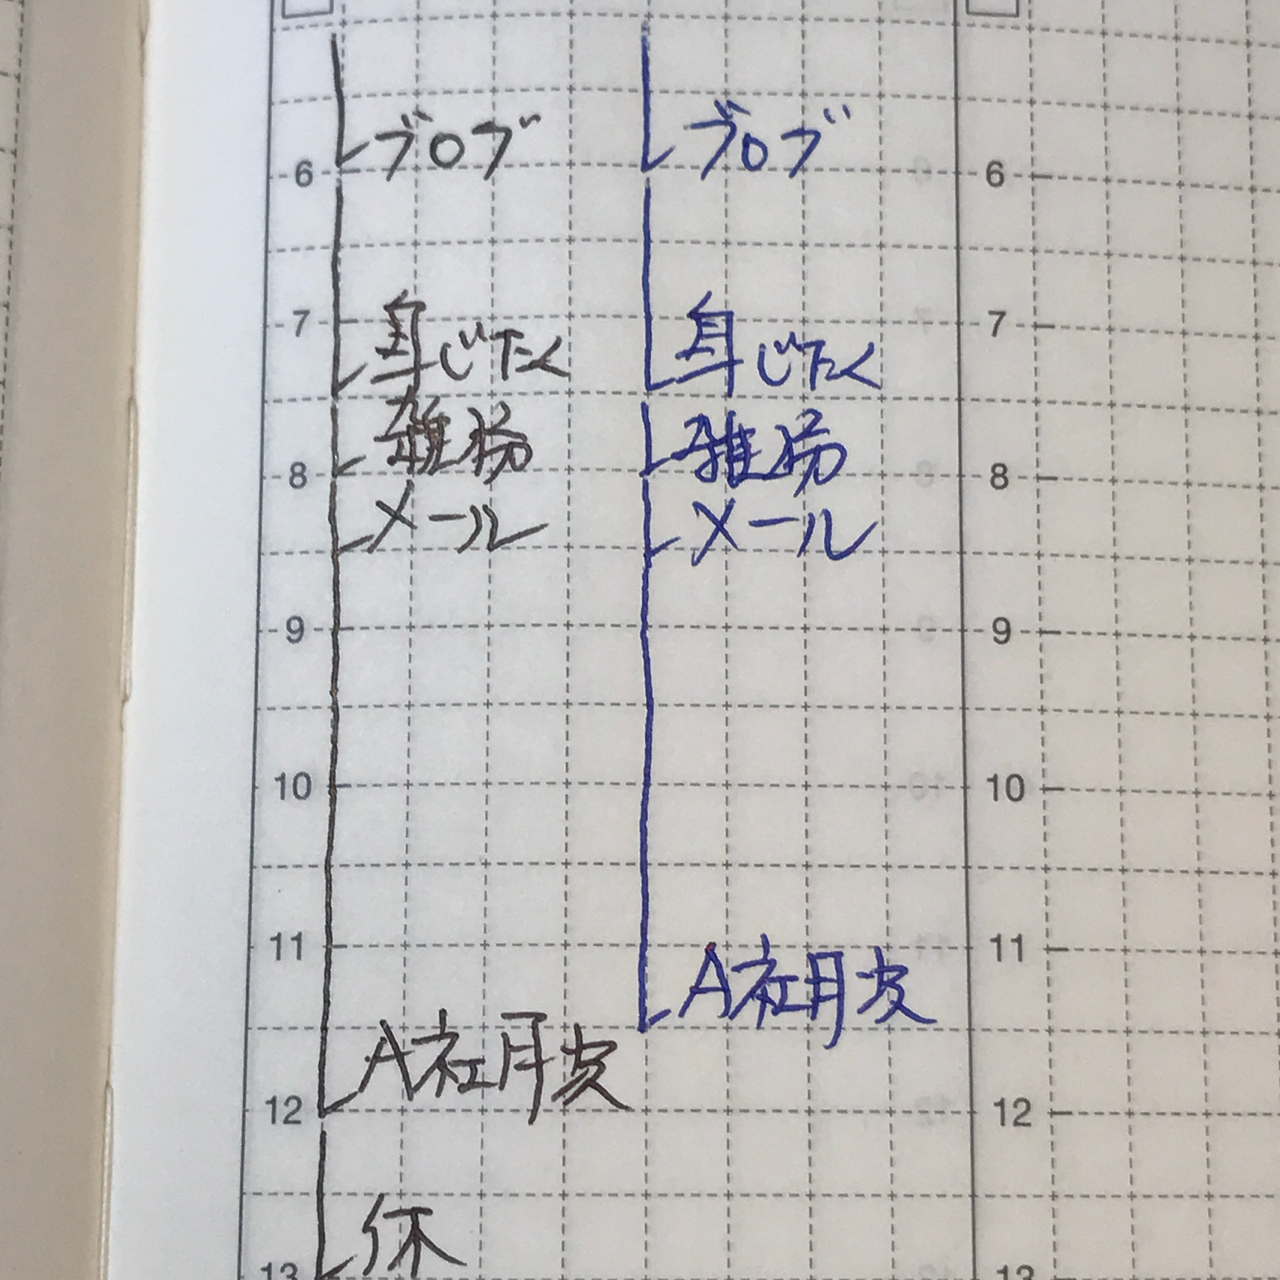 ブログ ブログ
6 6
7 身じたく 身じたく 7
雑務 雑務
8 8
メール メール
9 9
10 10
11 11
A社月次
A社月次
12 12
休
13 13